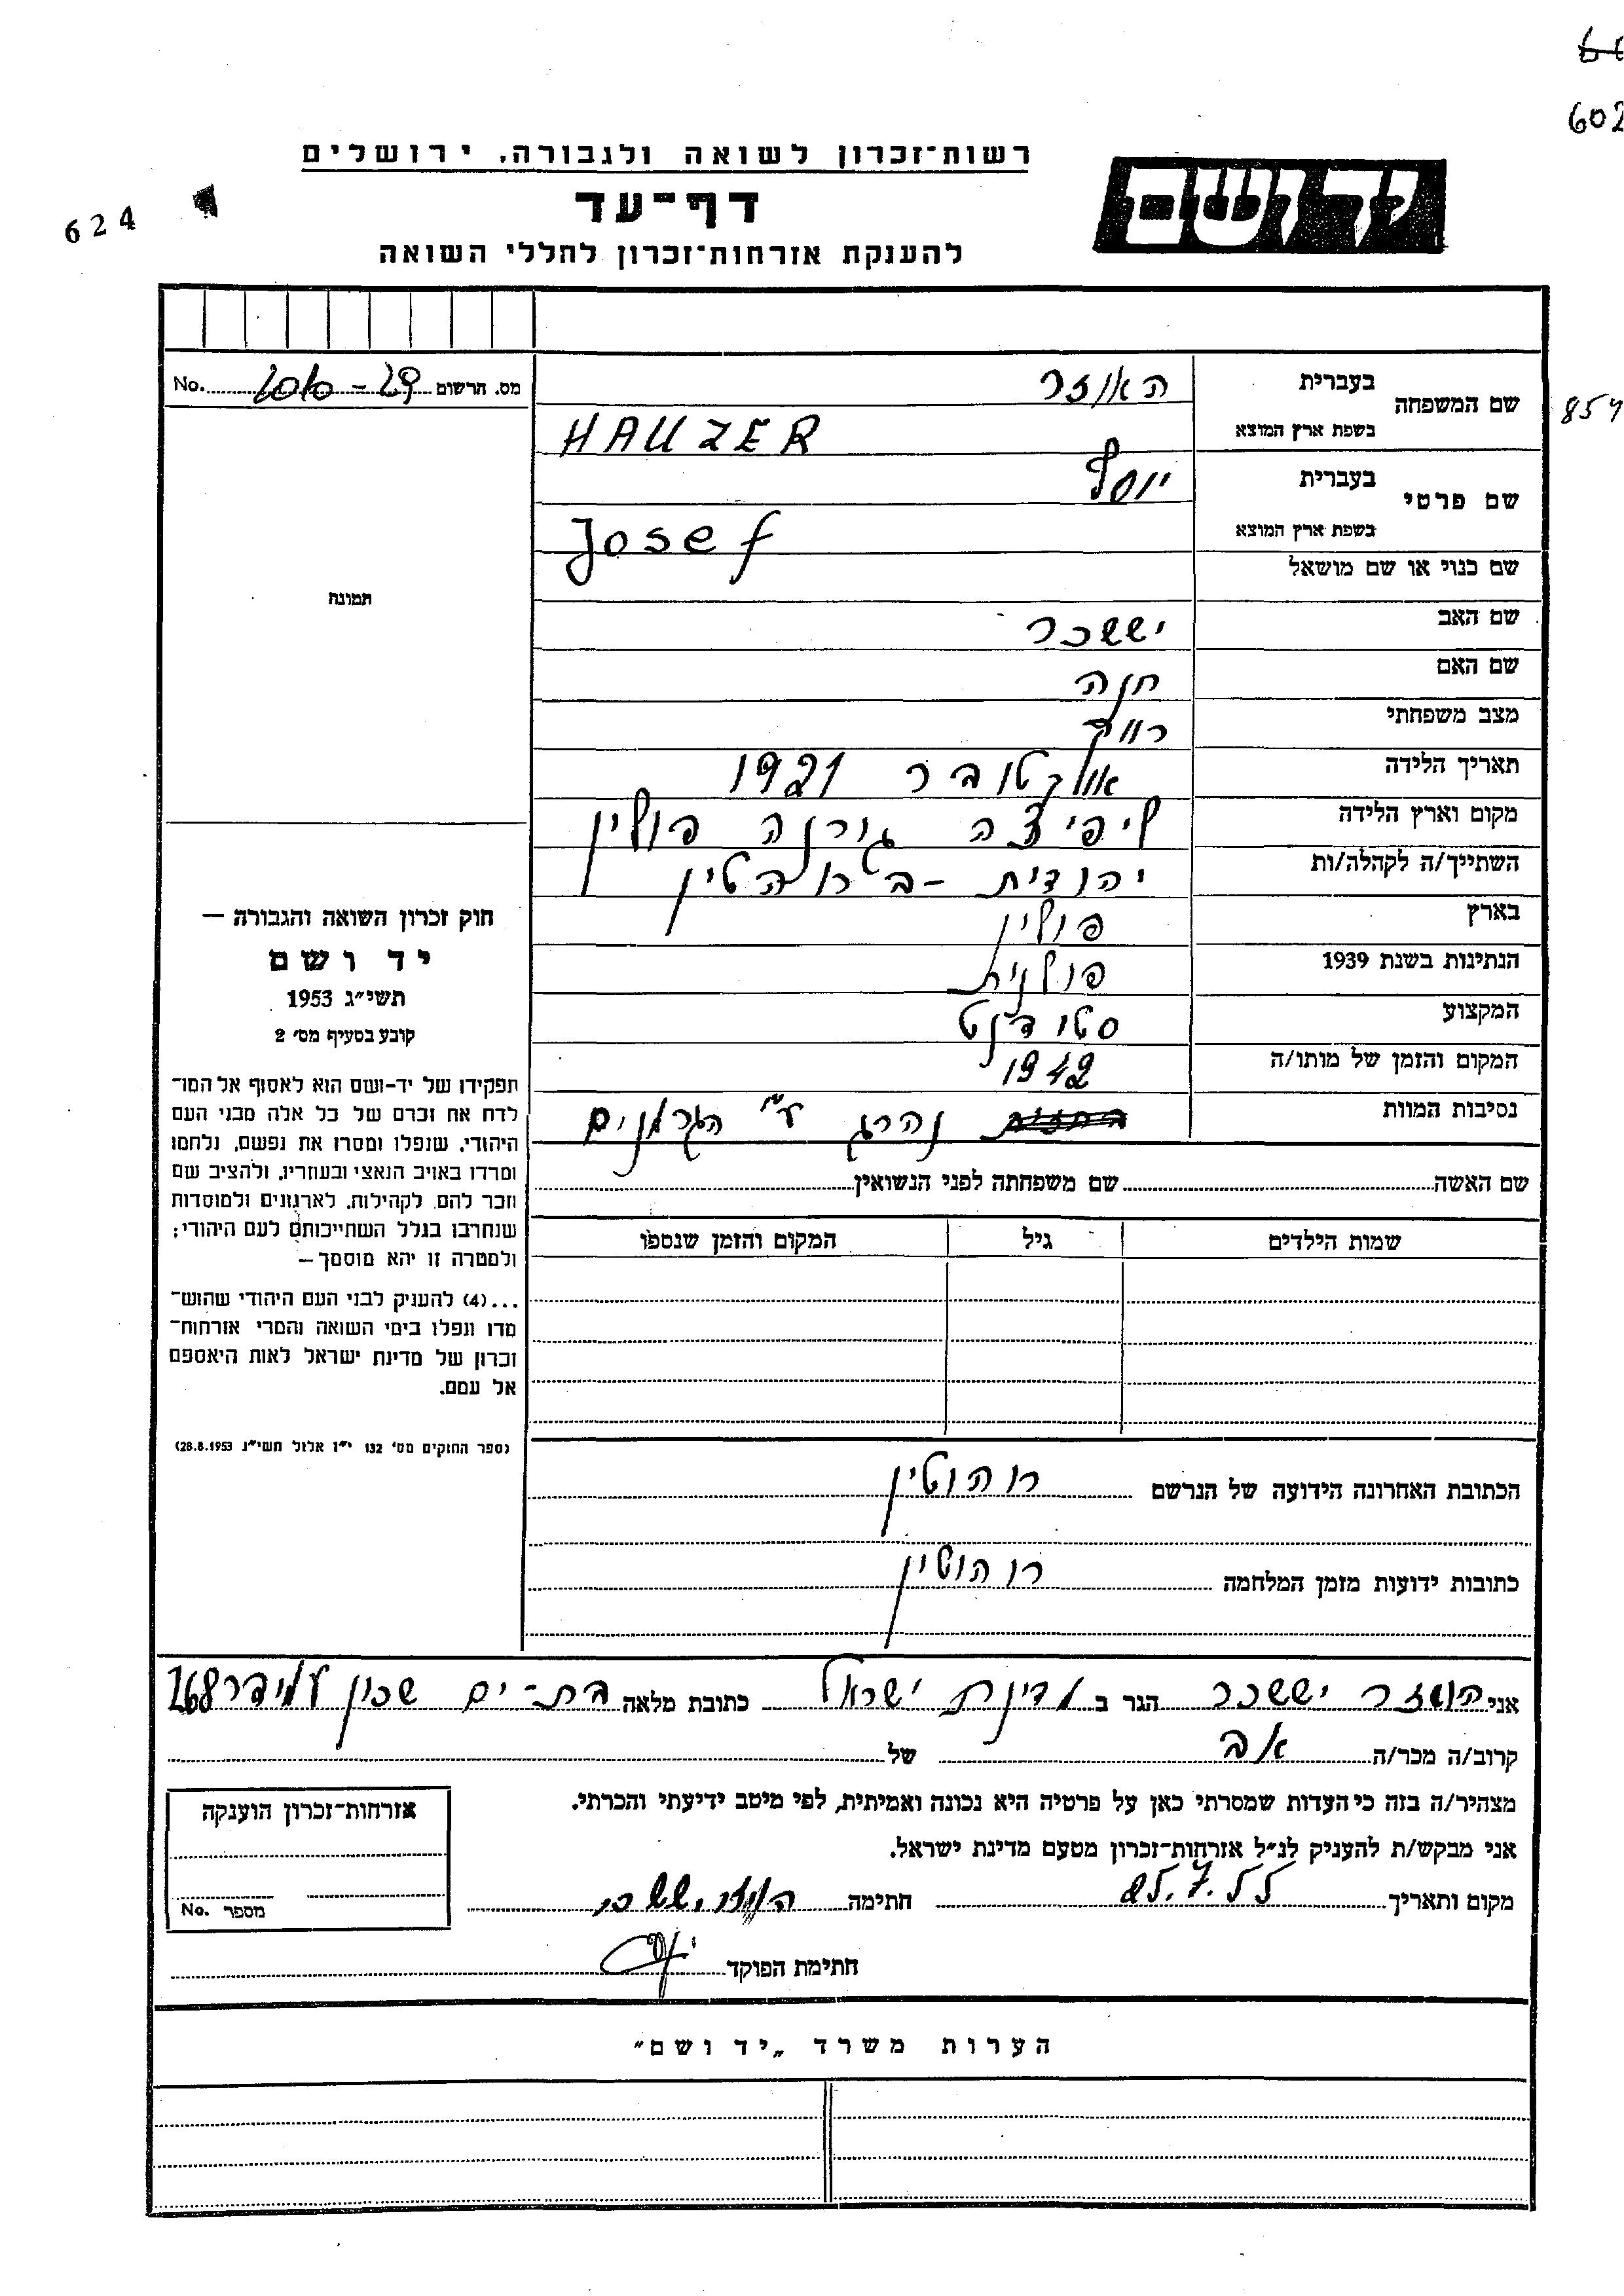 602
רשות־זכרון לשואה ולגבורה, ירושלים
יד ושם
דף־עד
624
להענקת אזרחות־זכרון לחללי השואה
מס. הרשום No.
שם המשפחה בעברית האוזר
854
בשפת ארץ המוצא HAUZER
שם פרטי בעברית יוסף
בשפת ארץ המוצא Josef
שם כנוי או שם מושאל
תמונה
שם האב יששכר
שם האם חנה
מצב משפחתי רווק
תאריך הלידה אוקטובר 1921
מקום וארץ הלידה ליפיצה גורנה פולין
השתייך/ה לקהלה/ות יהודית -ב
בארץ פולין
הנתינות בשנת 1939 פולנית
המקצוע סטודנט
המקום והזמן של מותו/ה 1942
נסיבות המוות נהרג ע"י הגרמנים
חוק זכרון השואה והגבורה —
יד ושם
תשי״ג 1953
קובע בסעיף מס׳ 2
תפקידו של יד-ושם הוא לאסוף אל המו־
לדת את זכרם של כל אלה מבני העם
היהודי, שנפלו ומסרו את נפשם, נלחמו
ומרדו באויב הנאצי ובעוזריו, ולהציב שם
וזכר להם, לקהילות, לארגונים ולמוסדות
שנחרבו בגלל השתייכותם לעם היהודי;
ולמטרה זו יהא מוסמך—
...(4) להעניק לבני העם היהודי שהוש־
מדו ונפלו בימי השואה והמרי אזרחות־
זכרון של מדינת ישראל לאות היאספם
אל עמם.
(ספר החוקים מס׳ 132 י״ז אלול תשי״ג 28.8.1953)
שם האשה שם משפחתה לפני הנשואין
שמות הילדים גיל המקום והזמן שנספו
הכתובת האחרונה הידועה של הנרשם רוהוטין
כתובות ידועות מזמן המלחמה רוהוטין
אני האוזר יששכר הגר ב מדינת ישראל כתובת מלאה בת-ים שכון עמידר 268
קרוב/ה מכר/ה אב של
מצהיר/ה בזה כי העדות שמסרתי כאן על פרטיה היא נכונה ואמיתית, לפי מיטב ידיעתי והכרתי.
אני מבקש/ת להעניק לנ״ל אזרחות־זכרון מטעם מדינת ישראל.
מקום ותאריך 25.7.55 חתימה האוזר יששכר
חתימת הפוקד
אזרחות־זכרון הוענקה
מספר No.
הערות משרד „יד ושם״